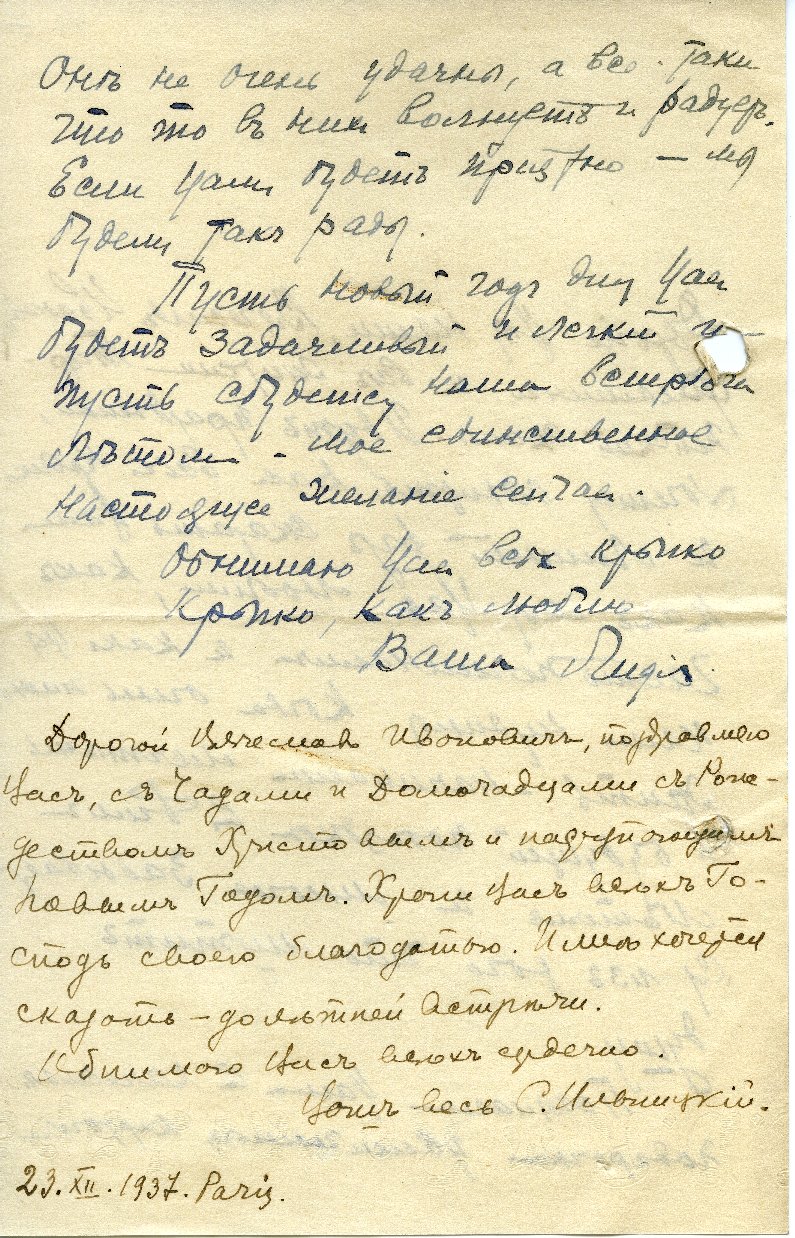 Онѣ не очень удачны, а все-таки
что то въ них волнуетъ и радуетъ.
Если Вамъ будетъ прiятно – мы
будемъ такъ рады.
Пусть новый годъ для Вас
будетъ задачливый и легкiй и
пусть сбудется наша встрѣча
Лѣтомъ – мое единственное
настоящее желанiе сейчас.
Обнимаю Вас всѣх крѣпко
Крѣпко, какъ люблю
Ваша Лидiя
Дорогой Вячеславъ Ивановичъ, поздравляю
Васъ, съ Чадами и Домочадцами съ Рож-
дествомъ Христовымъ и наступающимъ
Новымъ Годомъ. Храни Васъ всѣхъ Го-
сподь своею благодатью. И мнѣ хочется
сказать – до лѣтней встрѣчи.
Обнимаю Васъ всѣхъ сердечно.
Вашъ весь С.
23. XII. 1937. Paris.